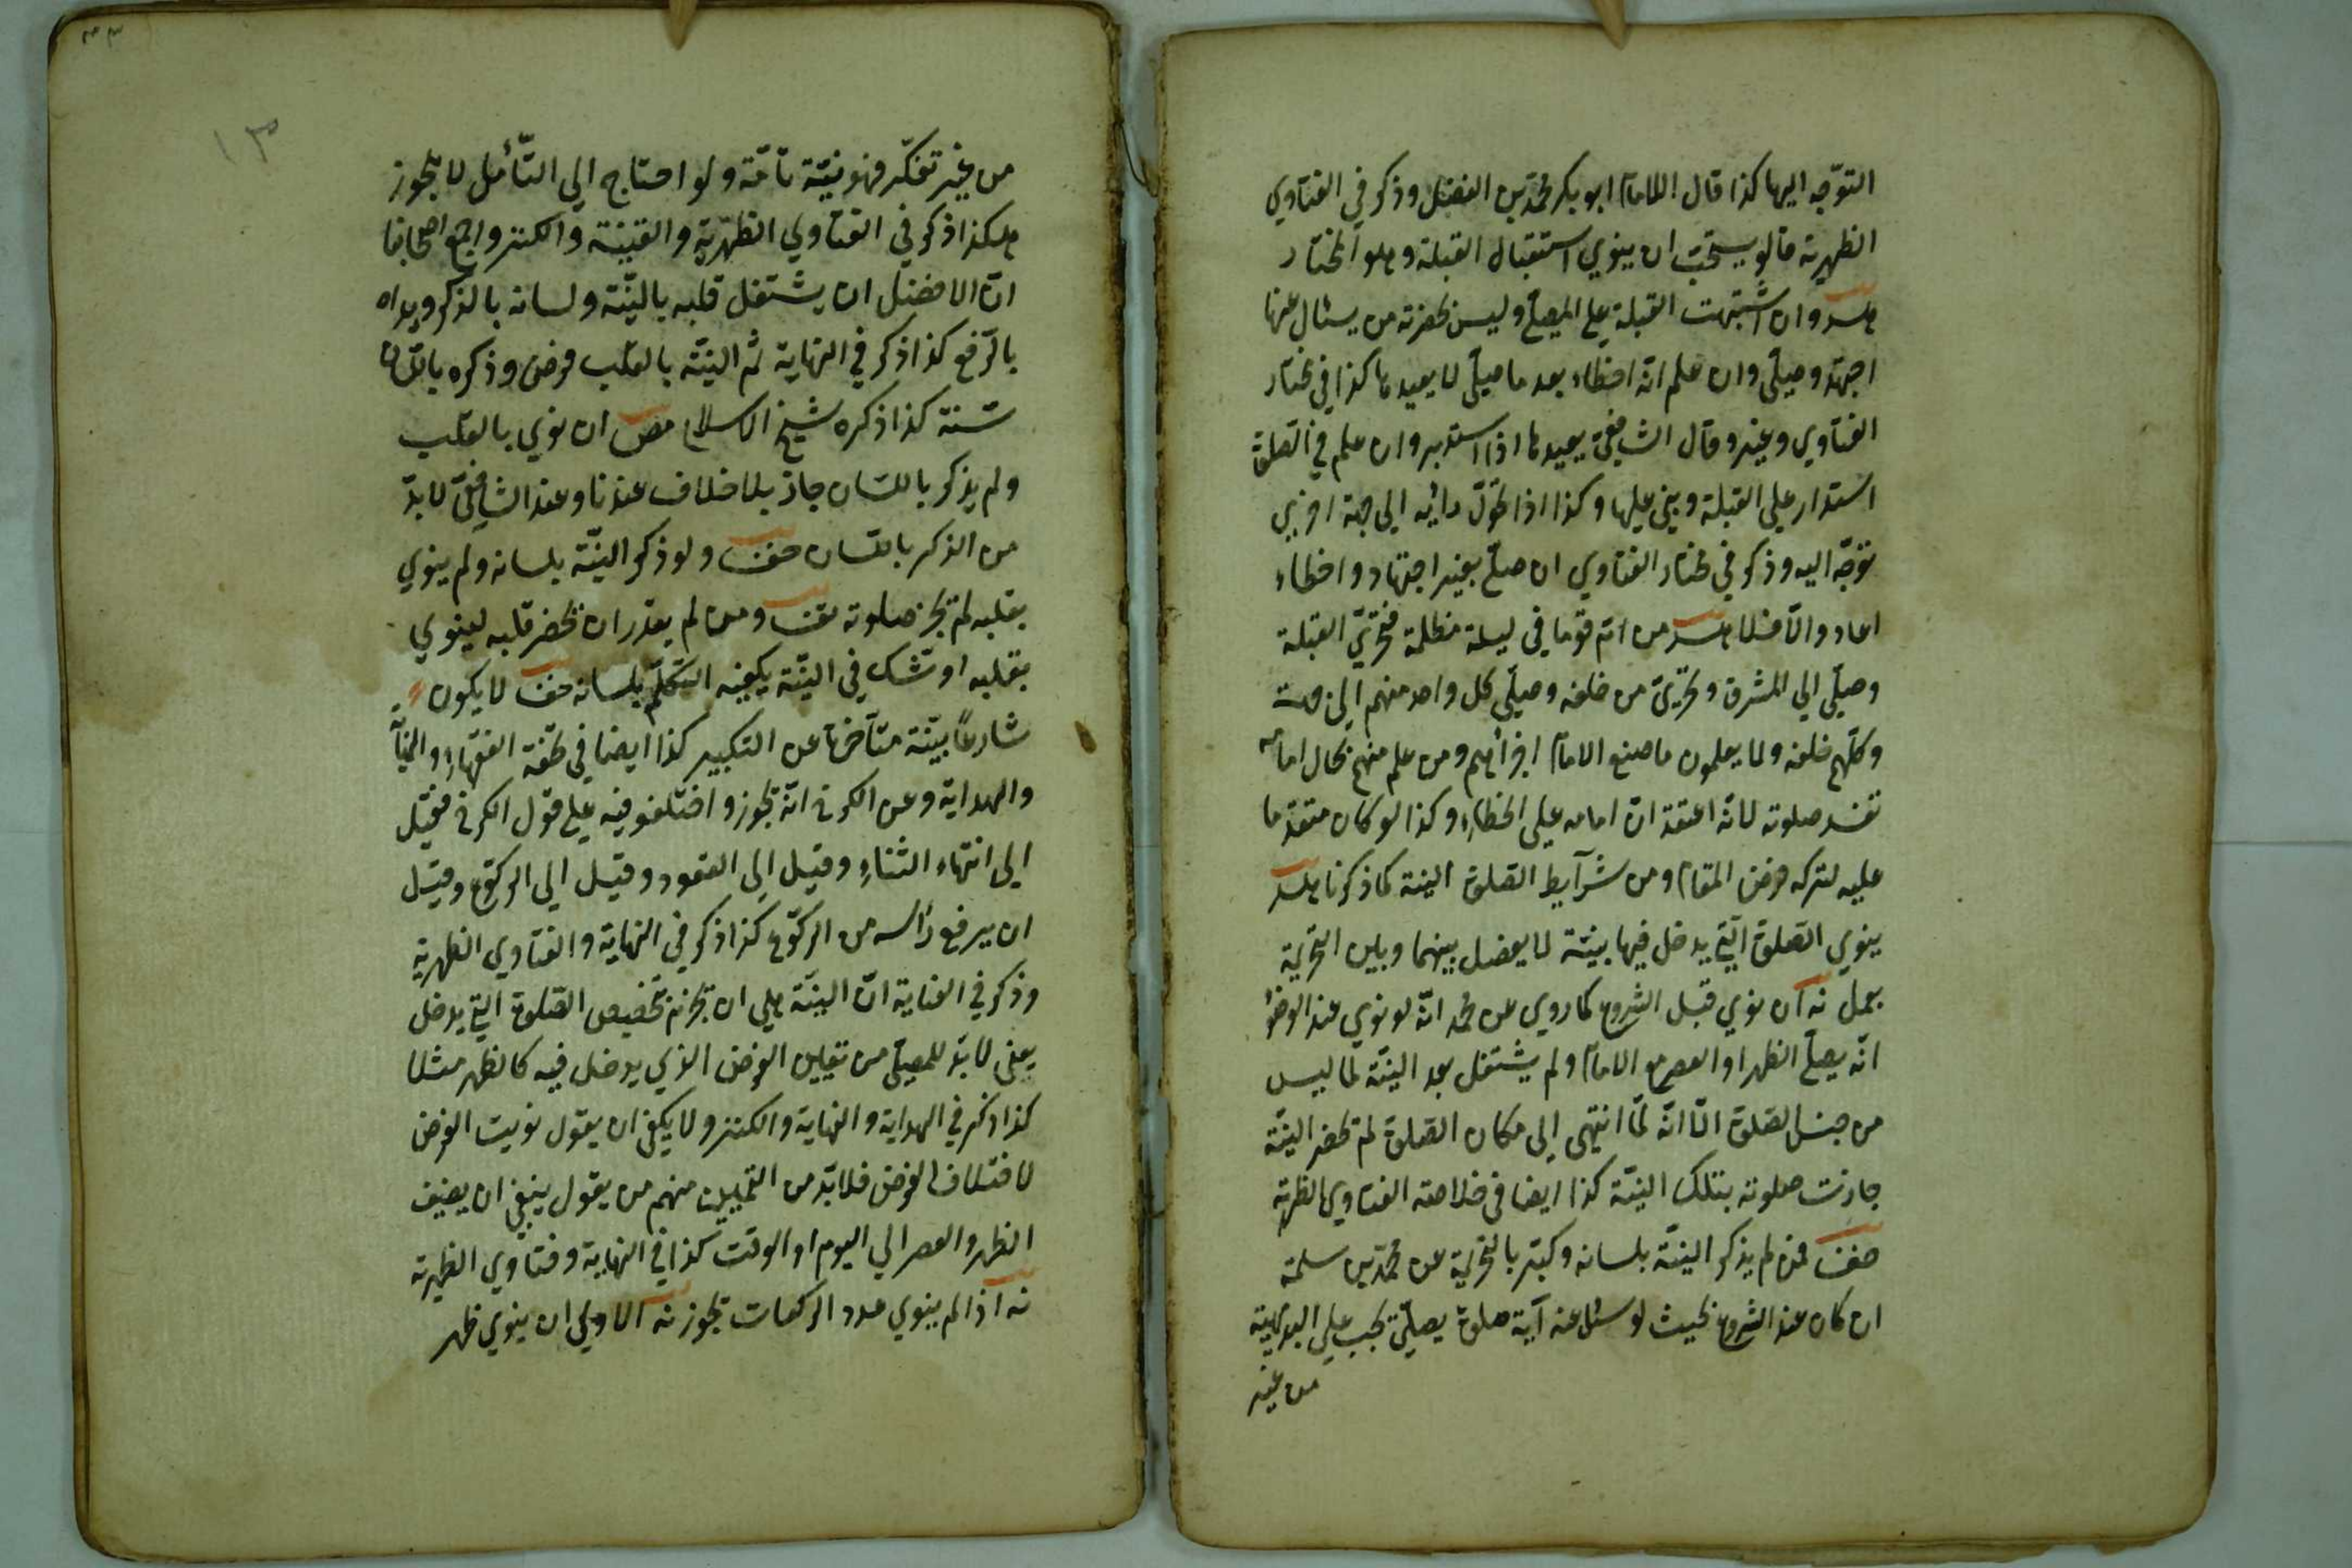 التوجه اليها كذا قال الامام ابو بكر محمد بن الفضل وذكر في الفتاوي
الظهيرية قالو يستحب ان ينوي استقبال القبلة وهلو المختار
هسد وان اشتبهت القبلة علي المصلي وليس بحضرته من يسئال عنها
اجتهد وصلي وان علم انه اخطاء بعد ما صلي لا يعيدها كذا في مختار
الفتاوي وغيره وقال الشافعي يعيدها اذا استدبر وان علم في الصلوة
استدار علي القبلة وبني عليها وكذا اذا تحول رائيه الي جهة اخري
توجه اليه وذكر في مختار الفتاوي ان صلي بغير اجتهاد واخطاء
اعاد والا فلا هسد من ام قوما في ليلة مظلمة فتحري القبلة
وصلي الي المشرق وتحري من خلفه وصلي كل واحد منهم الي جهت
وكلهم خلفه ولا يعلمون ما صنع الامام اجزأهم ومن علم منهم بحال امامه
تفسد صلوته لانه اعتقد ان امامه علي الخطاء وكذا لو كان متقدما
عليه لتركه فرض المقام ومن شرآيط الصلوة النية كما ذكرنا هسد
ينوي الصلوة التي يدخل فيها بنية لا يفصل بينهما وبين التحريمة
بعمل نه ان نوي قبل الشروع كما روي عن محمد انه لو نوي عند الوضوء
انه يصلي الظهر او العصر مع الامام ولم يشتغل بعد النية لما ليس
من جنس الصلوة الا انه لما انتهي الي مكان الصلوة لم تحضر النية
جازت صلوته بتلك النية كذا ايضا في خلاصه الفتاوي الظهرية
حنف فمن لم يذكر النية بلسانه وكبر بالتحريمة عن محمد بن سلمة
ان كان عند الشروع بحيث لو سئل عنه آية صلوة يصلي يجب علي البديهية
من غير
٣٣
١٣
من غير تفكر فهو نية تامة ولو احتاج الي التأمل لا يجوز
هكذا ذكر في الفتاوي الظهرية والقينة والكنز واجمع اصحابنا
ان الافضل ان يشتغل قلبه بالنية ولسانه بالذكر ويداه
بالرفع كذا ذكر في النهاية ثم النية بالقلب فرض وذكره باللسان
سنة كذا ذكره شيخ الاسلام مص ان نوي بالقلب
ولم يذكر باللسان جاز بلا خلاف عندنا وعند الشافعي لا بد
من الذكر باللسان حنف ولو ذكر النية بلسانه ولم ينوي
بقلبه لم تجز صلوته تف ومن لم يقدر ان يحضر قلبه لينوي
بقلبه او شك في النية يكفيه التكلم بلسانه حف لا يكون
شارعا بنية متأخرة عن التكبير كذا ايضا في تحفة الفقهاء
والهداية وعن الكرخي انه تجوز واختلفو فيه علي قول الكرخي فقيل
الي انتهاء الثناء وقيل الي القعود وقيل الي الركوع وقيل
ان يرفع رأسه من الركوع كذا ذكر في النهاية والفتاوي الظهرية
وذكر في العناية ان النية هلي ان تجزم تخصيص الصلوة التي يدخل
يعني لا بد للمصلي من تعيين الفرض الذي يدخل فيه كالظهر مثلا
كذا ذكر في الهداية والنهاية والكنز ولا يكفي ان يقول نويت الفرض
لاختلاف الفرض فلا بد من التعيين منهم من يقول ينبغي ان يضيف
الظهر والعصر الي اليوم او الوقت كذا في النهاية وفتاوي الظهرية
نه اذا لم ينوي عدد الركعات تجوز نه الاولي ان ينوي ظهر